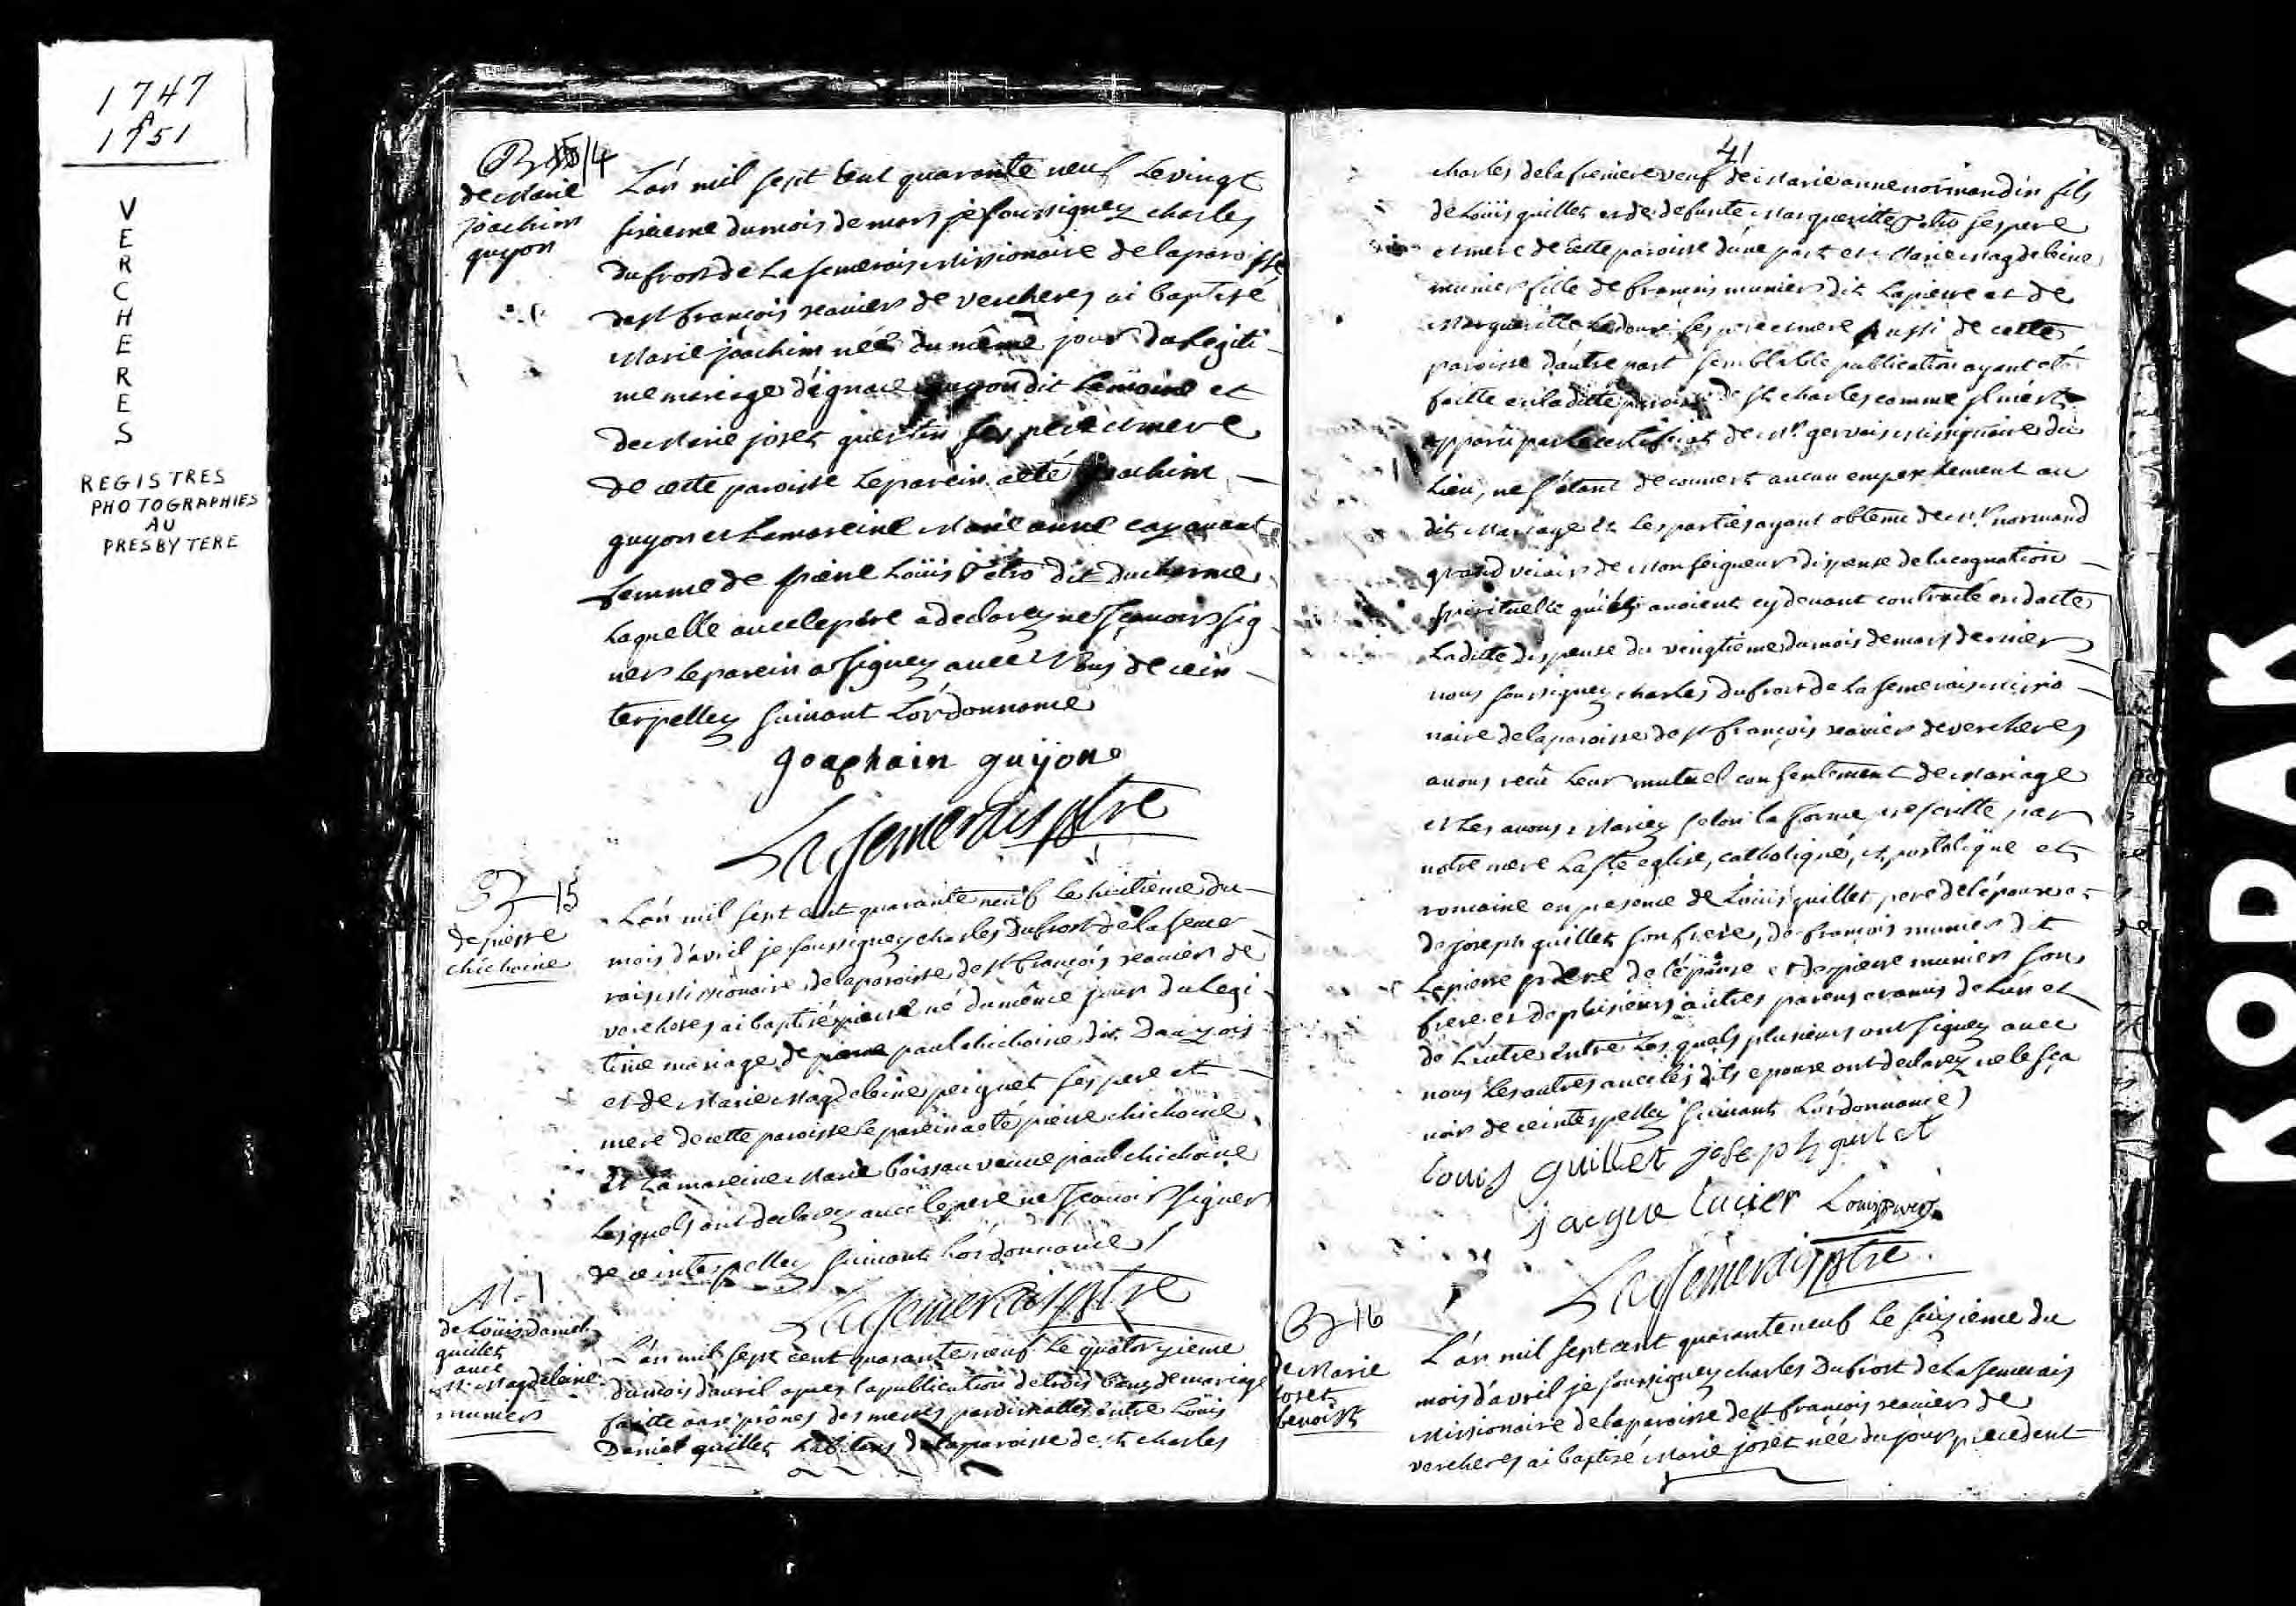 1747
A
1751
VERCHERES
REGISTRES
PHOTOGRAPHIES
AU
PRESBYTERE
B 14
de Marie
joachim
guyon
L'án mil sept cent quarante neuf le vingt
sixieme du mois de mars je soussigney charles
dufrost de la Jemerais Missionaire de la paroisse
de st françois xavier de vercheres ai baptisé
Marie joáchim néé du même jour du legiti-
me mariage d'ignace guyon dit Lemoine et
de Marie joset quertin ses pere et mere
de cette paroisse le parein a été joachim
guyon et la mareine Marie anne
femme de piere Loüis Petro dit ducharme
Laquelle avec le pére a declarey ne sçavoir sig
ner le parein a signey avec Nous de ce in-
terpelley suivant L'ordonnance
joaphain guijon
La Jemerais ptre
B 15
de pierre
chichoine
L'án mil sept cent quarante neuf le huitieme du
mois d'avril je soussigney charles Dufrost de la Jeme-
rais Missionaire de la paroisse de st françois xavier de
vercheres ai baptisé pierre né du même jour du Legi-
time mariage de pierre paul chichoine dit Dauzois
et de Marie Magdeleine peignet ses pere et
mere de cette paroisse le parein a eté pierre chichoine
et la mareine Marie boissau veuve paul chichoine
Lesquels ont declarey avec le pere ne sçavoir signer
de ce interpelley suivant L'ordonnance
La Jemerais ptre
M-1
de Loüis Daniel
guilet
avec
M. Magdelaine
munier
L'án mil sept cent quarante neuf le quatorzieme
du mois d'avril apres la publication de trois bans de mariage
faitte aux prônes des messes paroissialles entre Loüis
Daniel guillet habitans de la paroisse de st charles
41
charles de la freniere veuf de Marie anne normandin fils
de Loüis guillet et de defunte Marguerittte Petro ses pere
et mere de cette paroisse d'une part et Marie Magdeleine
munier fille de francois munier dit Lapierre et de
Marguerítte Ledoux ses pere et mere Aussi de cette
paroisse d'autre part semblable publication ayant eté
faitte en la ditte paroisse de st charles comme il m'est
apparu par le certificat de Mr gervais Missionaire du
Lieu, ne s'étant decouvert aucun empeschement au
dit Mariage et Les parties ayant obtenu de Mr normand
grand vicair de Monseigneur dispense de la cognation
spirituelle qu'ils avoient cy devant contracté en datte
Laditte dispense du vingtieme du mois de mars dernier
nous soussigney charles dufrost de la Jemerais missio-
naire de la paroisse de st françois xavier de vercheres
avons recû Leur mutuel consentement de Mariage
et Les avons Mariez selon la forme prescritte par
notre mere La ste eglise, catholique, apostolique et
romaine en presence de Loüis guillet pere de l'épouse et
de joseph guillet son frere, de françois munier dit
Lapierre pere de l'épouse et de pierre munier son
frere et de plusieurs autres parens et amis de L'un et
de L'autre entre Lesquels plusieurs ont signey avec
nous Les autres avec les dits epoux ont declarey ne le sça
voir de ce interpelley suivant L'ordonnance
Louis guillet joseph guillet
jacque lucier Louis
La Jemerais ptre
B 16
de Marie
joset
benoist
L'án mil sept cent quarante neuf le seizieme du
mois d'avril je soussigney charles Dufrost de la Jemerais
Missionaire de la paroisse de st françois xavier de
vercheres ai baptisé Marie joset néé du jour precedent
KODAK